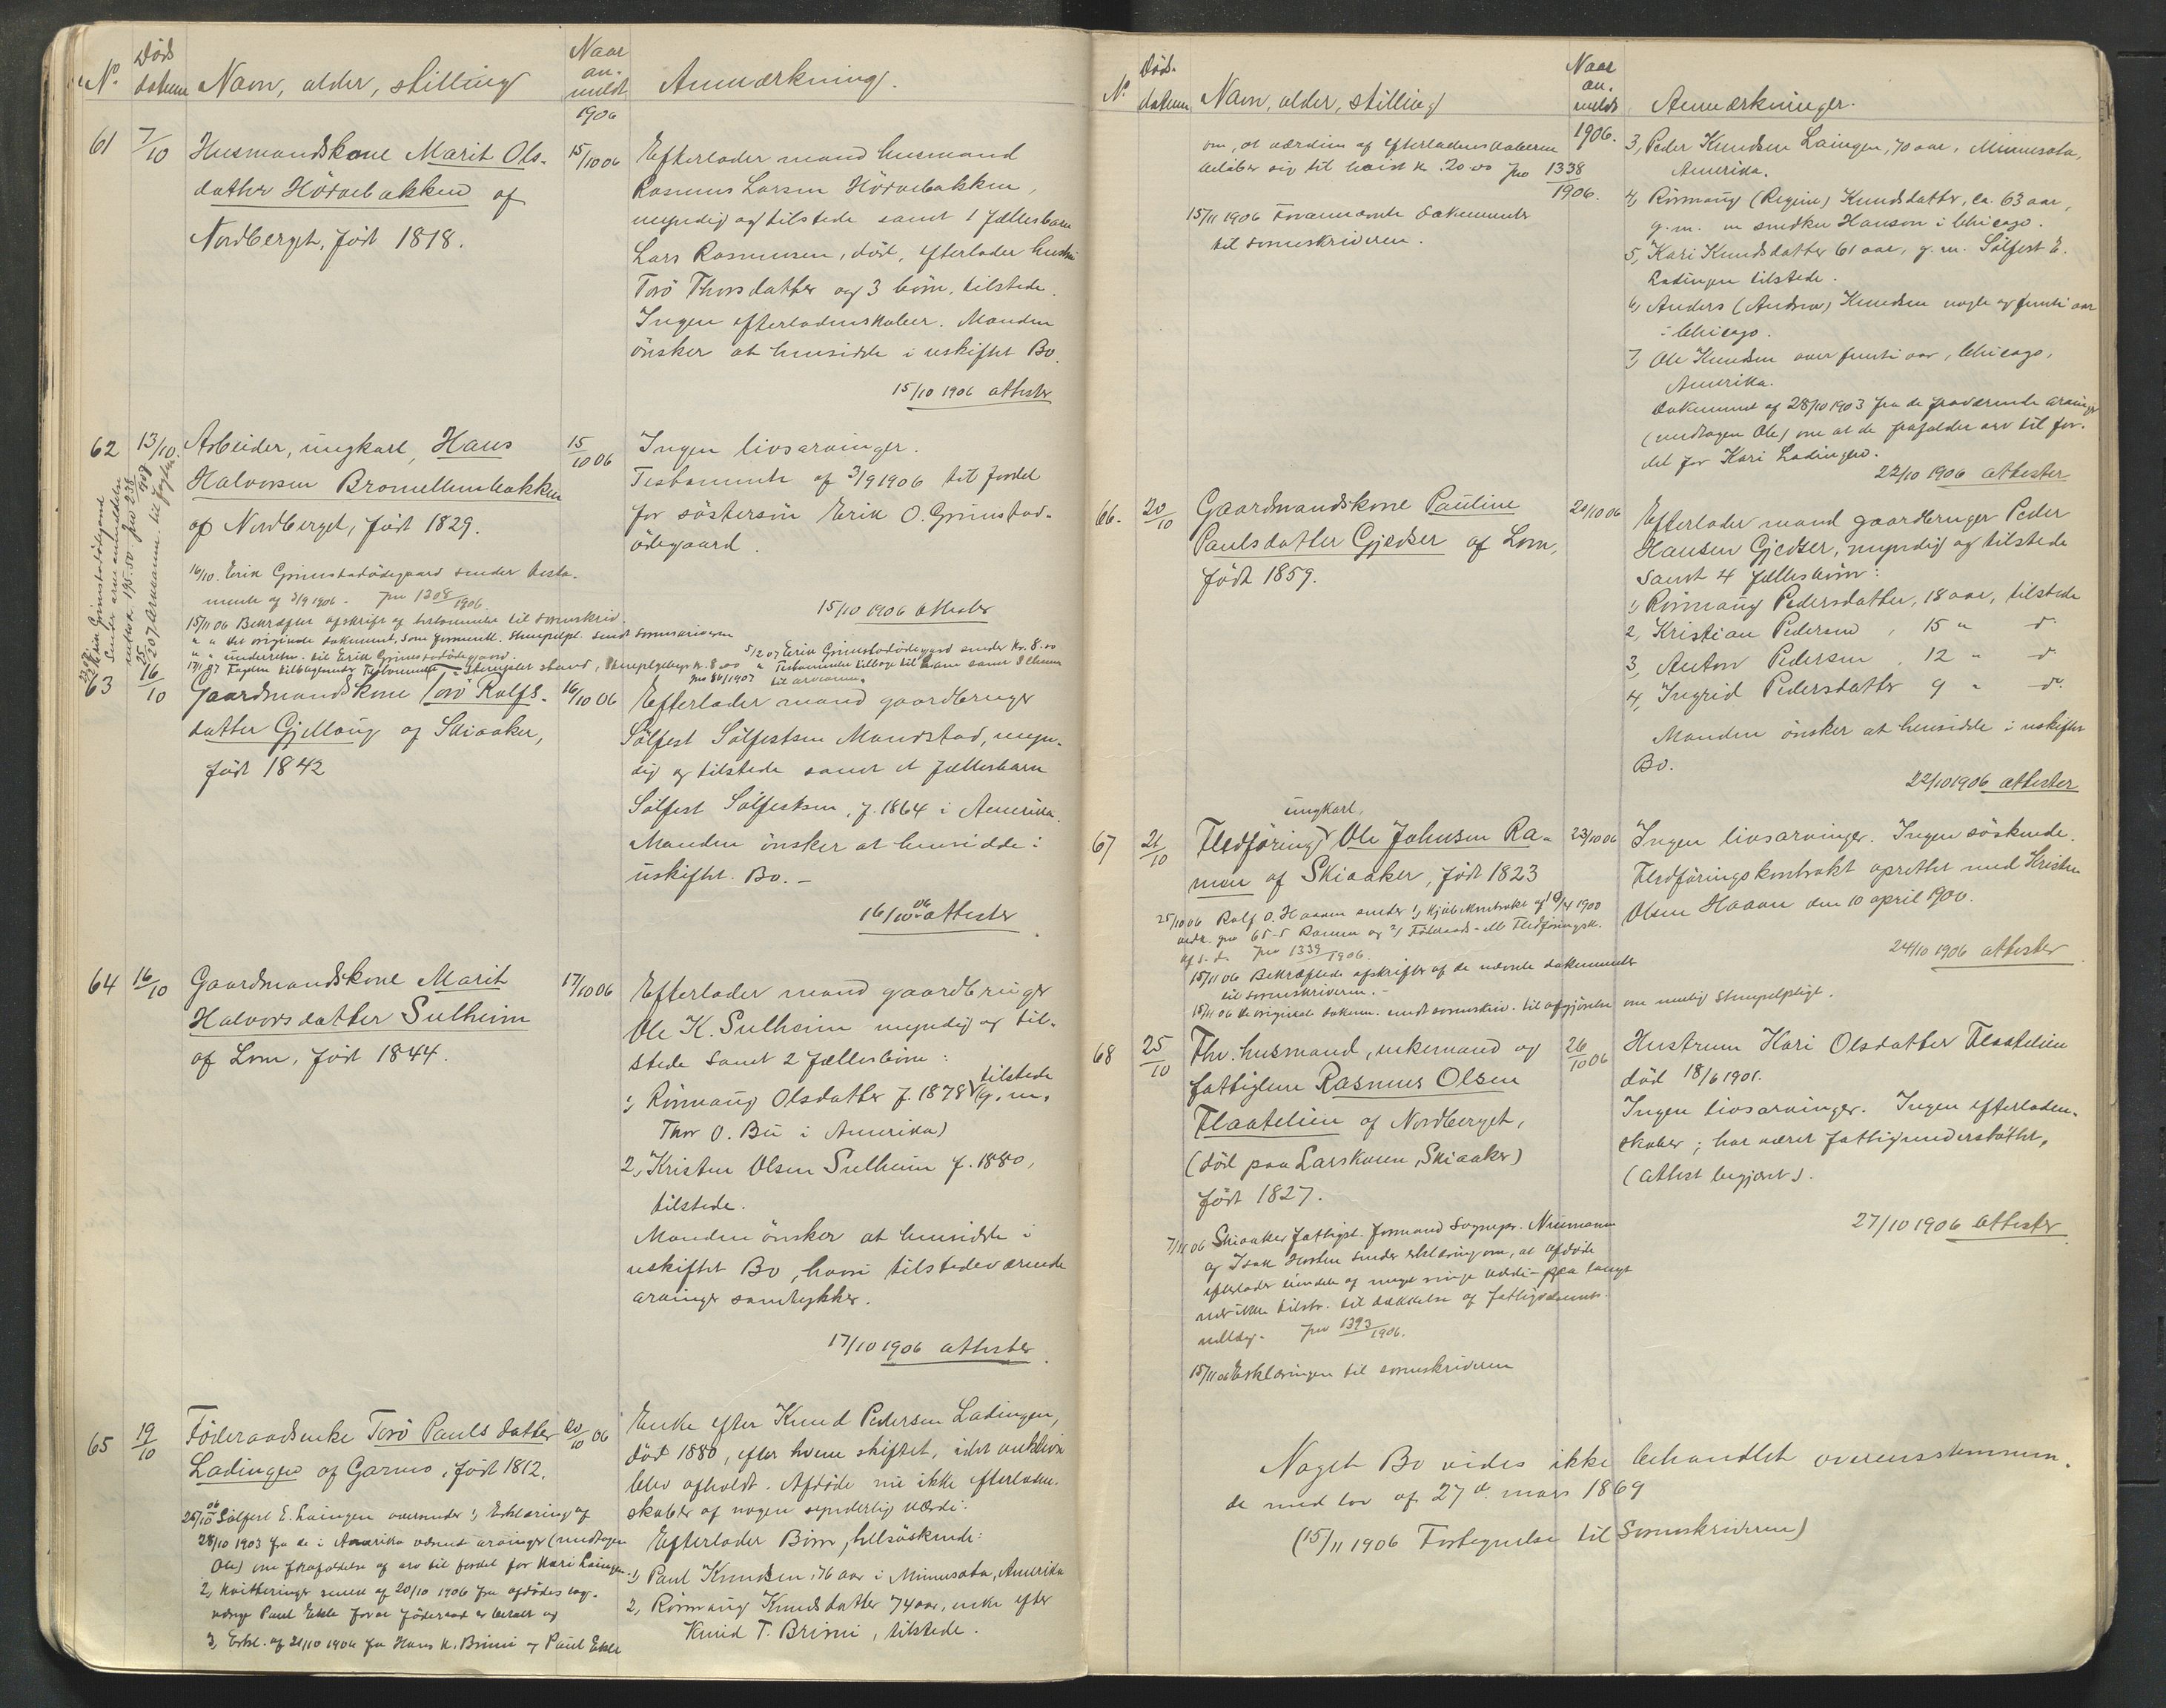 No.
Døds
datum
Navn, alder, stilling
Naar
an-
meldt
1906
Anmærkning.
61
7/10
Husmandskone Marit Ols-
datter Hörvebakken af
Nordberget, født 1818.
15/10 06
Efterlader mand husmand
Rasmus Larsen Hörvebakken,
myndig og tilstede samt 1 fællesbarn
Lars Rasmusen, död, efterlader hustru
Torö Thorsdatter og 3 börn, tilstede.
Ingen efterladenskaber. Manden
önsker at hensidde i uskiftet Bo.
15/10 1906 attester
62
13/10.
Arbeider, ungkarl, Hans
Halvorsen Bromellembakken
af Nordberget, født 1829.
16/10. Erik Grimstadödegaard sender testa-
mente af 3/9 1906 - jnr 1308/1906.
15/11 06 Bekræftet afskrift af testamentet til sorenskriv.
" " det originale dokument, som formentl. stempelpl. sendt sorenskriveren
" " underretn. til Erik Grimstadödegaard.
15/10 06
Ingen livsarvinger.
Testamente af 3/9 1906 til fordel
for söstersön Erik O. Grimstad-
ödegaard.
15/10 1906 attester
5/2 07 Erik Grimstadödegaard sender kr. 8.00
" Testamentet tilbage til ham samt
jnr 86/1907 til arveanm.
63
16/10
Gaardmandskone Torö Rolfs-
datter Gjellaug af Skiaaker,
født 1842
16/10 06
Efterlader mand gaardbruger
Sölfest Sölfestsen Mandstad, myn-
dig og tilstede samt et fællesbarn
Sölfest Sölfestsen, f. 1864 i Amerika.
Manden önsker at hensidde i
uskiftet Bo. -
16/10 06 attester
64
16/10
Gaardmandskone Marit
Halvorsdatter Sulheim
af Lom, født 1844.
17/10 06
Efterlader mand gaardbruger
Ole K. Sulheim myndig og til-
stede samt 2 fællesbörn:
1, Rönnaug Olsdatter f. 1878 tilstede (g. m.
Thor O. Bu i Amerika)
2, Kristen Olsen Sulheim f. 1880,
tilstede.
Manden önsker at hensidde i
uskiftet Bo, hvori tilstedeværende
arvinger samtykker.
17/10 1906 attester
65
19/10
Föderaadsenke Torö Paulsdatter
Ladingen af Garmo, født 1812.
25/10 06 Sölfest E. Laingen oversender 1, Erklæring af
28/10 1903 fra de i Amerika værende arvinger (undtagen
Ole) om frafaldelse af arv til fordel for Kari Laingen
2, Kvitteringer senest af 20/10 1906 fra afdödes lag-
værge Paul Ekle for at föderaad er betalt og
3, Erkl. af 21/10 1906 fra Hans K. Brimi og Paul Ekle
20/10 06
Enke efter Knud Pedersen Ladingen,
död 1880, efter hvem skiftet, idet auktion
blev afholdt. Afdöde nu ikke efterladen-
skaber af nogen synderlig værdi.
Efterlader Börn, helsöskende:
1, Paul Knudsen, 76 aar i Minnesota, Amerika
2, Rönnaug Knudsdatter 74 aar, enke efter
Knud T. Brimi, tilstede.
No.
Döds-
datum
Navn, alder, stilling
Naar
an-
meldt
1906.
Anmærkninger.
om, at værdien af efterladenskaberne
belöber sig til höist kr. 20.00 jnr 1338/1906.
15/11 1906 Forannævnte dokumenter
til sorenskriveren.
3, Peder Knudsen Laingen, 70 aar, Minnesota,
Amerika.
4, Rönnaug (Regine) Knudsdatter, ca. 63 aar,
g. m. en snedker Hanson i Chicago.
5, Kari Knudsdatter 61 aar, g. m. Sölfest E.
Ladingen tilstede.
6, Anders (Andrew) Knudsen nogle og femti aar
i Chicago.
7, Ole Knudsen over femti aar, Chicago,
Amerika.
Dokument af 28/10 1903 fra de fraværende arvinger
(undtagen Ole) om at de frafalder arv til for-
del for Kari Ladingen.
22/10 1906 attester
66.
20/10
Gaardmandskone Pauline
Paulsdatter Gjedser af Lom,
født 1859.
20/10 06
Efterlader mand gaardbruger Peder
Hansen Gjedser, myndig og tilstede
samt 4 fællesbörn:
1, Rönnaug Pedersdatter, 18 aar, tilstede
2, Kristian Pedersen, 15 " do
3, Anton Pedersen, 12 " do
4, Ingrid Pedersdatter 9 " do.
Manden önsker at hensidde i uskiftet
Bo.
22/10 1906 attester
67
21/10
ungkarl,
Fledföring Ole Johnsen Ra-
men af Skiaaker, født 1823
25/10 06 Rolf O. Haaven sender 1, Kjöbekontrakt af 10/4 1900
vedr. gnr 65-5 Ramen og 2, Föderaads- ell. Fledföringsk.
af s. d. jnr 1339/1906.
15/11 06 Bekræftede afskrifter af de nævnte dokumenter
til sorenskriveren. -
15/11 06 de originale dokum. sendt sorenskriv. til afgjörelse om mulig stempelpligt.
23/10 06
Ingen livsarvinger. Ingen söskende.
Fledföringskontrakt oprettet med Kristen
Olsen Haaven den 10 april 1900.
24/10 1906 attester
68
25/10
Fhv. husmand, enkemand og
fattiglem Rasmus Olsen
Flaatelien af Nordberget,
(död paa Larskaren, Skiaaker)
født 1827.
7/11 06 Skiaaker fattigst. formand Sognepr. Niemann
og Isak Horten sender erklæring om, at afdöde
efterlader eiendele af meget ringe værdi - paa langt
nær ikke tilstr. til dækkelse af fattigvæsenets
udlæg. jnr 1393/1906.
15/11 06 Erklæringen til sorenskriveren
26/10 06
Hustruen Kari Olsdatter Flaatelien
död 18/6 1901.
Ingen livsarvinger. Ingen efterladen-
skaber; har været fattigunderstöttet.
(Attest begjæret).
27/10 1906 attester
Noget Bo vides ikke behandlet overensstemmen-
de med lov af 27de mars 1869
(15/11 1906 Fortegnelse til Sorenskriveren)